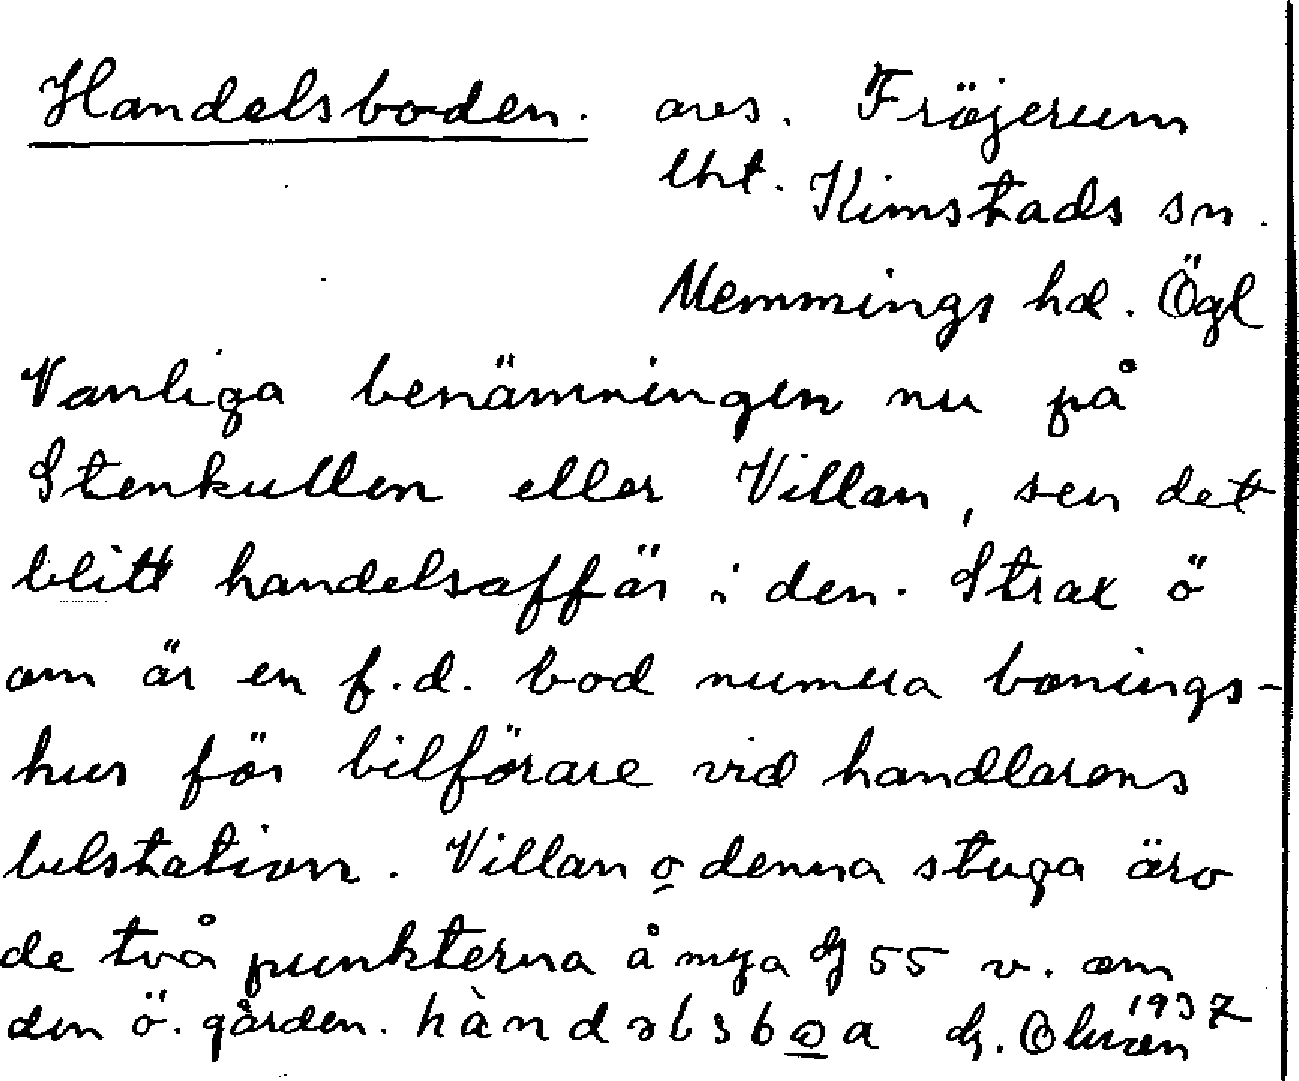 Handelsboden. avs. Fröjerum
lht. Kimstads sn.
Memmings hd. Ögl
Vanliga benämningen nu på
Stenkullen eller Villan, sen det
blitt handelsaffär i den. Strax ö
om är en f.d. bod numera bonings-
hus för bilförare vid handlarens
bilstation. Villan o denna stuga äro
de två punkterna å nya 55 v. om
den ö. gården. 1937